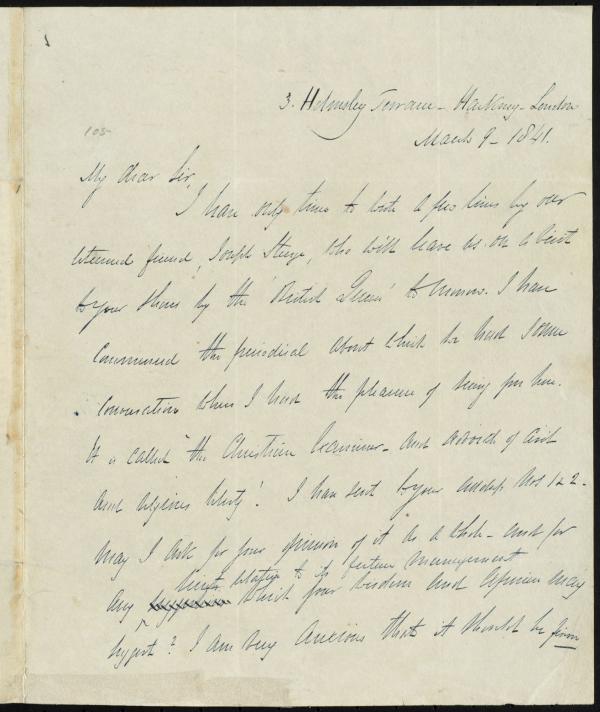 105
3. Helmsley Terrace - Hackney - London
March 9 - 1841.
My dear Sir,
I have only time to write a few lines by our
esteemed friend, Joseph Sturge, who will leave us on a visit
to your shores by the "British Queen" tomorrow. I have
commenced the periodical about which we had some
conversation when I had the pleasure of seeing you here.
It is called "the Christian Examiner - and record of civil
and religious liberty". I have sent to your address Nos 1 & 2 -
May I ask for your opinion of it as a whole - and for
hints relative to its future management
any which your wisdom and experience may
suggest? I am very anxious that it should be given